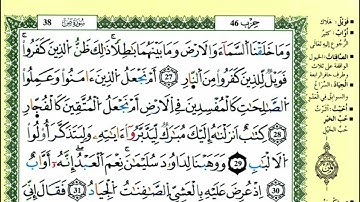 38 سُورَةُ ص حِزْب 46
وَمَا خَلَقْنَا ٱلسَّمَآءَ وَٱلْأَرْضَ وَمَا بَيْنَهُمَا بَٰطِلًا ۚ ذَٰلِكَ ظَنُّ ٱلَّذِينَ كَفَرُوا۟ ۚ
فَوَيْلٌ لِّلَّذِينَ كَفَرُوا۟ مِنَ ٱلنَّارِ 27 أَمْ نَجْعَلُ ٱلَّذِينَ ءَامَنُوا۟ وَعَمِلُوا۟
ٱلصَّٰلِحَٰتِ كَٱلْمُفْسِدِينَ فِى ٱلْأَرْضِ أَمْ نَجْعَلُ ٱلْمُتَّقِينَ كَٱلْفُجَّارِ
28 كِتَٰبٌ أَنزَلْنَٰهُ إِلَيْكَ مُبَٰرَكٌ لِّيَدَّبَّرُوٓا۟ ءَايَٰتِهِۦ وَلِيَتَذَكَّرَ أُو۟لُوا۟
ٱلْأَلْبَٰبِ 29 وَوَهَبْنَا لِدَاوُۥدَ سُلَيْمَٰنَ ۚ نِعْمَ ٱلْعَبْدُ ۖ إِنَّهُۥٓ أَوَّابٌ
30 إِذْ عُرِضَ عَلَيْهِ بِٱلْعَشِىِّ ٱلصَّٰفِنَٰتُ ٱلْجِيَادُ 31 فَقَالَ إِنِّىٓ
فَوَيْلٌ: هلاك
أَوَّابٌ: كثير
الرجوع إليه تعالى
الصافنات: الخيول